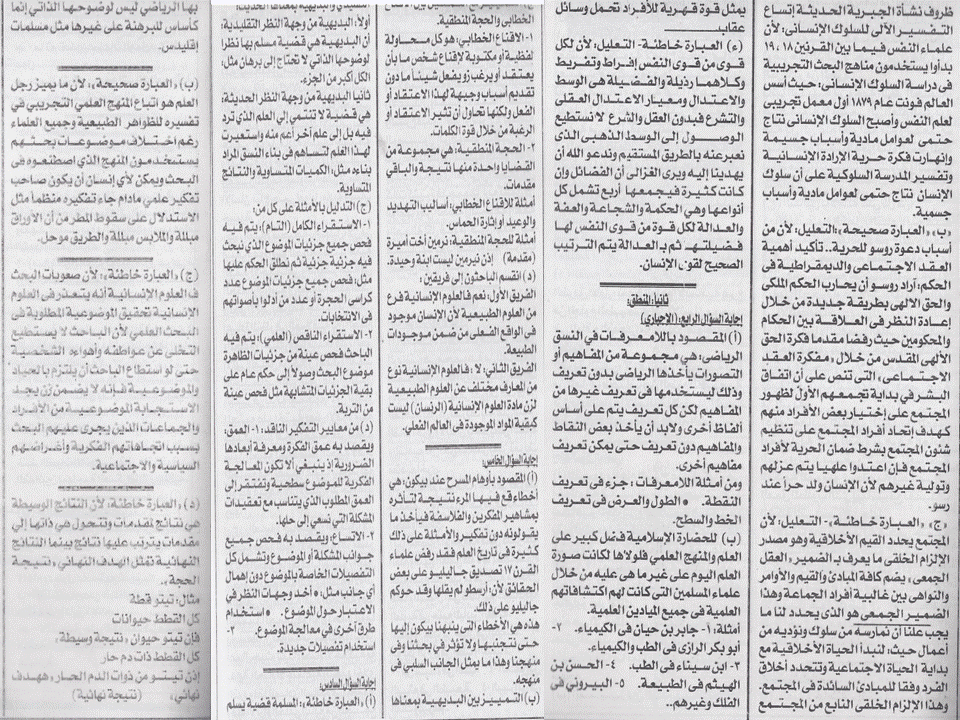 ظروف نشأة الجبرية الحديثة إتساع
التفسير الآلى للسلوك الإنسانى:
علماء النفس فيما بين القرنين ١٨، ١٩
بدأوا يستخدمون مناهج البحث التجريبية
فى دراسة السلوك الإنسانى: حيث أسس
العالم فونت عام ١٨٧٩ أول معمل تجريبى
لعلم النفس وأصبح السلوك الإنسانى نتاج
حتمى لعوامل مادية وأسباب جسيمة
وانهارت فكرة حرية الإرادة الإنسانية
وتفسير المدرسة السلوكية على أن سلوك
الإنسان نتاج حتمى لعوامل مادية وأسباب
جسمية.
«ب» «العبارة صحيحة»: التعليل: لأن من
أسباب دعوة روسو للحرية.. تأكيد أهمية
العقد الاجتماعى والديمقراطية فى
الحكم: أراد روسو أن يحارب الحكم الملكى
والحق الالهى بطريقة جديدة من خلال
إعادة النظر فى العلاقة بين الحكام
والمحكومين حيث رفضا مقدما فكرة الحق
الألهى المقدس من خلال «مفكرة العقد
الاجتماعى» التى تنص على أن اتفاق
البشر فى بداية تجمعهم الأول لظهور
المجتمع على إختيار بعض الأفراد منهم
كهدف إتحاد أفراد المجتمع على تنظيم
شئون المجتمع بشرط ضمان الحرية لأفراد
المجتمع فإن اعتدوا علهيا يتم عزلهم
وتولية غيرهم لأن الإنسان ولد حراً عند
رسو.
«ج» «العبارة خاطئة»- التعليل: لأن
المجتمع يحدد القيم الأخلاقية وهو مصدر
الإلزام الخلقى ما يعرف بـ الضمير، العقل
الجمعى، يضم كافة المبادئ والقيم والأوامر
والنواهى بين غالبية أفراد الجماعة وهذا
الضمير الجمعى هو الذى يحدد لنا ما
يجب علنا أن نمارسة من سلوك ونؤديه من
أعمال حيث: لتبدأ الحياة الأخلاقية مع
بداية الحياة الاجتماعية وتتحدد أخلاق
الفرد وفقا للمبادئ السائدة فى المجتمع.
وهذا الإلزام الخلقى النابع من المجتمع
يمثل قوة قهرية للأفراد تحمل وسائل
عقاب.
(ء) العبارة خاطئة- التعليل: لأن لكل
قوى من قوى النفس إفراط وتفريط
وكلاهما رذيلة والفضيلة هى الوسط
والاعتدال ومعيار الاعتدال العقلى
والتشرع فبدون العقل والشرع لا نستطيع
الوصول إلى الوسط الذهبى الذى
نعبر عنه بالطريق المستقيم وندعو الله أن
يهدينا إليه ويرى الغزالى أن الفضائل وإن
كانت كثيرة فيجمعها أربع تشمل كل
أنواعها وهى الحكمة والشجاعة والعفة
والعدالة لكل قوة من قوى النفس لها
فضيلتهر ثم بـ العدالة يتم الترتيب
الصحيح لقوى الإنسان.
ثانيا: المنطق:
إجابة السؤال الرابع: (الاجبارى)
(أ) المقصود باللامعرفات فى النسق
الرياضى: هى مجموعة من المفاهيم أو
التصورات يأخذها الرياضى بدون تعريف
وذلك ليستخدمها فى تعريف غيرها من
المفاهيم لكن كل تعريف يتم على أساس
ألفاظ أخرى ولابد أن يأخذ بعض النقاط
والمفاهيم دون تعريف حتى يمكن تعريف
مفاهيم أخرى.
ومن أمثلة اللامعرفات: جزء فى تعريف
النقطة. * الطول والعرض فى تعريف
الخط والسطح.
(ب) للحضارة الإسلامية فضل كبير على
العلم والمنهج العلمى فلولاها لكانت صورة
العلم اليوم على غير ما هى عليه من خلال
علماء المسلمين التى كانت لهم اكتشافاتهم
العلمية فى جميع الميادين العلمية.
أمثلة: ١- جابر بن حيان فى الكيمياء. ٢-
أبو بكر الرازى فى الطب والكيمياء.
٣- ابن سيناء فى الطب. ٤- الحسن بن
الهيثم فى الطبيعة. ٥- البيرونى فى
الفلك وغيرهم..
الخطابى والحجة المنطقية.
١- الاقناع الخطابى: هو كل محاولة
لفظية أو مكتوبة لإقناع شخص ما بأن
يعتقد أو يرغب زو يفعل شينا ما دون
تقديم أسباب وجيهة لهذا الاعتقاد أو
الفعل ولكنها تحاول أن تثير الاعتقاد أو
الرغبة من خلال قوة الكلمات.
٢- الحجة المنطقية: هى مجموعة من
القضايا واحدة منها نتيجة والباقى
مقدمات.
أمثلة للإقناع الخطابى: أساليب التهديد
والوعيد أو إثارة الحماس.
أمثلة للحجة المنطقية: نرمين أخت أميرة
(مقدمة) إذن نيرمين ليست ابنة وحيدة.
(د) انقسم الباحثون إلى فريقين:
الفريق الأول: نعم فالعلوم الإنسانية فرع
من العلوم الطبيعية لأن الإنسان موجود
فى الواقع الفعلى من ضمن موجودات
الطبيعة.
الفريق الثانى: لا: فالعلوم الإنسانية نوع
من المعارف مختلف عن العلوم الطبيعية
لزن مادة العلوم الإنسانية (الرنسان) ليست
كبقية المواد الموجودة فى العالم الفعلى.
إجابة السؤال الخامس:
(أ) المقصود بأوهام المسرح عند بيكون: هى
أخطاء قع فيها المرء نتيجة لتأثره
بمشاهير المفكرين والفلاسفة فيأخذ ما
يقولونه دون تفكير والأمثلة على ذلك
كثيرة فى تاريخ العلم فقد رفض علماء
القرن ١٧ تصديق جاليليو على بعض
الحقائق لأن: أرسطو لم يقلها وقد حوكم
جاليليو على ذلك.
هذه هى الأخطاء التى ينبهنا بيكون إليها
حتى نتجنبها ولا تؤثر فى بحثنا وفى
منهجنا وهذا ما يمثل الجانب السلبى فى
منهجه.
(ب) التمييز بين البديهية بمعناها
أولا: البديهية من وجهة النظر التقليدية:
أن البديهية هى قضية مسلم بها نظرا
لوضوحها الذاتى لا تحتاج إلى برهان مثل:
الكل أكبر من الجزء.
ثانيا البديهية من وجهة النظر الحديثة:
هى قضية لا تنتمى إلى العلم الذى ترد
فيه بل إلى علم آخر أعم منه واستعيرت
لهذا العلم لتساهم فى بناء النسق المراد
بناءه مثل: الكميات المتساوية والنتائج
المتساوية.
(ج) التدليل بالأمثلة على كل من:
١- الاستقراء الكامل (التام): يتم فيه
فحص جميع جزئيات الموضوع الذى نبحث
فيه جزئية جزئية ثم نطلق الحكم عليها
مثل: فحص جميع جزئيات الموضوع عدد
كراسى الحجرة أو عدد من أدلوا بأصواتهم
فى الانتخابات.
٢- الاستقراء الناقص (العلمى): يتم فيه
الباحث فحص عينة من جزئيات الظاهرة
موضوع البحث وصولا إلى حكم عام على
بقية الجزئيات المتشابهة مثل فحص عينة
من التربة.
(د) من معايير التفكير الناقد: ١- العمق:
ويقصد به عمق الفكرة ومعرفة أبعادها
الضرورية إذ ينبغى ألا تكون المعالجة
الفكرية للموضوع سطحية وتفتقر إلى
العمق المطلوب الذى يتناسب مع تعقيدات
المشكلة التى نسعى إلى حلها.
٢- الاتساع: ويقصد به فحص جميع
جوانب المشكلة أو الموضوع وتشمل كل
التفصيلات الخاصة بالموضوع دون إهمال
أى جانب مثل: * أخد وجهات النظر فى
الاعتبار حول الموضوع. * استخدام
طرق أخرى فى معالجة الموضوع. ٣-
استخدام تفصيلات جديدة.
إجابة السؤال السادس:
(أ) «العبارة خاطئة»: المسلمة قضية يسلم
بها الرياضى ليس لوضوحها الذاتى إنما
كأساس للبرهنة على غيرها مثل مسلمات
إقليدس.
(ب) «العبارة صحيحة»: لأن ما يميز رجل
العلم هو اتباع المنهج العلمى التجريبى فى
تفسيره للظواهر الطبيعية وجميع العلماء
رغم اختلاف موضوعات بحثهم
يستخدمون المنهج الذى اصطنعوه فى
البحث ويمكن لأى إنسان أن يكون صاحب
تفكير علمى مادام جاء تفكيره منظماً مثل
الاستدلال على سقوط المطر من أن الأوراق
مبللة والملابس مبللة والطريق موحل.
(ج) «العبارة خاطئة»: لأن صعوبات البحث
ف العلوم الإنسانية أنه يتعذر فى العلوم
الإنسانية تحقيق الموضوعية المطلوبة فى
البحث العلمى لأن الباحث لا يستطيع
التخلى عن عواطفه وأهواءه الشخصية
حتى لو استطاع الباحث أن يلتزم بالحياد
والموضوعية فإنه لا يضمن زن يجد
الاستجابة الموضوعية من الأفراد
والجماعات الذين يجرى عليهم البحث
بسبب اتجاهاتهم الفكرية وأغراضهم
السياسية والاجتماعية.
(د) «العبارة خاطئة»: لأن النتائج الوسيطة
هى نتائج لمقدمات وتتحول هى ذاتها إلى
مقدمات يترتب عليها نتائج بينما النتائج
النهائية تمثل الهدف النهائى «نتيجة
الحجة».
مثال: تيتو قطة
كل القطط حيوانات
فإن تيتو حيوان «نتيجة وسيطة»
كل القطط ذات دم حار
إذن تيتو من ذوات الدم الحار «هدف
نهائى» (نتيجة نهائية)